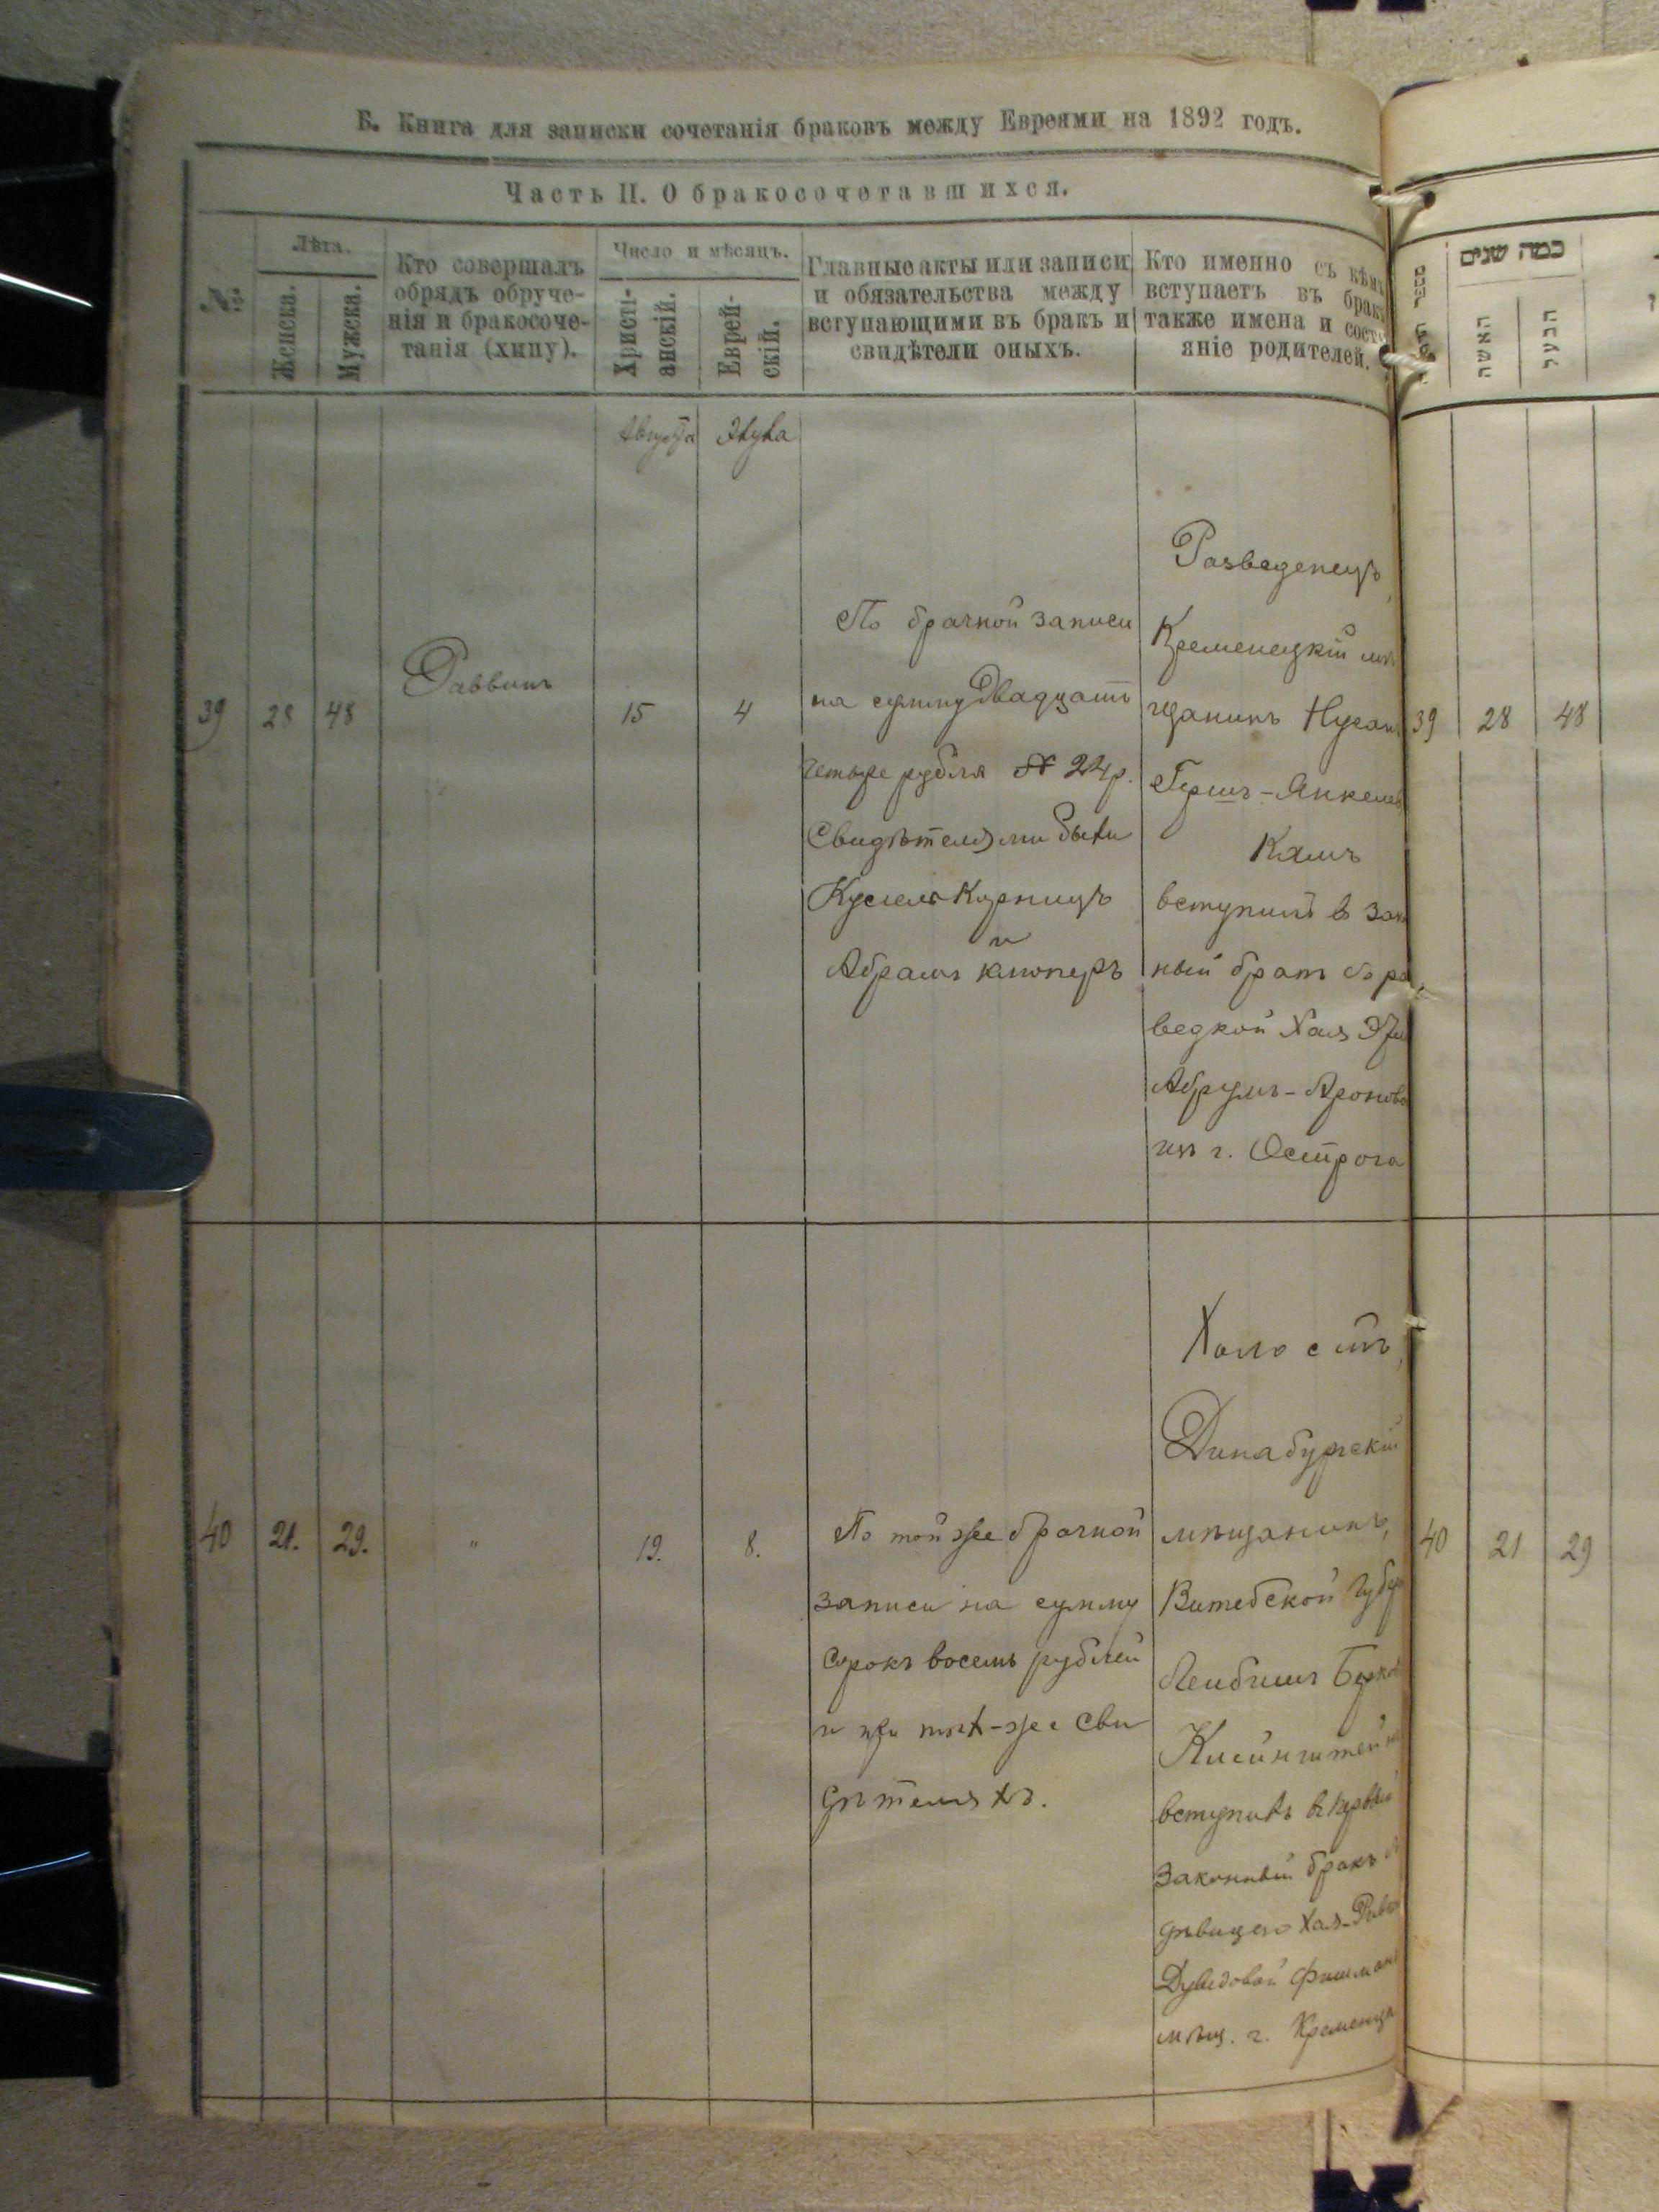 Б. Книга для записки сочетанія браковъ между Евреями на 1892 годъ.
Часть II. О бракосочетавшихся.
№
Лѣта.
Женска.
Мужска.
Кто совершалъ
обрядъ обруче-
нія и бракосоче-
танія (хипу).
Число и мѣсяцъ.
Христі-
анскій.
Еврей-
скій.
Главные акты или записи
и обязательства между
вступающими въ бракъ и
свидѣтели оныхъ.
Кто именно съ кѣмъ
вступаетъ въ бракъ
также имена и состо
яніе родителей.
כמה שנים
האשה
הבעל
Августа
Элула
39
28
48
Раввинъ
15
4
По брачной записи
на сумму двадцать
четыре рубля 24 р.
Свидѣтелями были
Кусель Корницъ
и
Абрамъ
Разведенецъ,
Кременецкій мѣ
щанинъ Нусан
Гершъ-Янкелев
Камъ
вступилъ в зак
ный бракъ съ ра
ведкой Хая
Абрумъ-Аронов
изъ г. Острога
39
28
48
40
21.
29.
"
19.
8.
По той же брачной
записи на сумму
сорокъ восемь рублей
и при тѣхъ-же сви
дѣтеляхъ.
Холостъ,
Динабургскій
мѣщанинъ,
Витебской губер
Лейбишъ Берков
вступилъ в первый
законный бракъ
дѣвицею Хая-Ривка
Дувидовой Фишман
мѣщ. г. Кременца
40
21
29